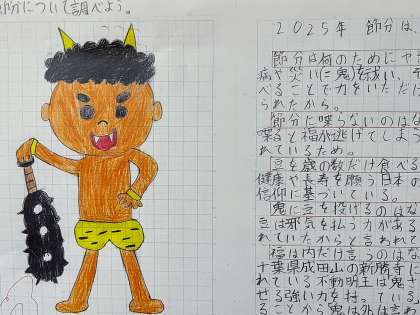 節分について調べよう。
2025年 節分は、
節分は何のためにや
病や災い(=鬼)を祓い、
べることで力をいただけ
られたから。
節分に喋らないのはな
喋ると福が逃げてしまう
れているため。
豆を歳の数だけ食べる
健康や長寿を願う日本の
信仰に基づいている。
鬼に豆を投げるのはな
豆は邪気を払う力がある
れていたからと言われて
福は内だけ言うのはな
千葉県成田山の新勝寺に
れている不動明王は鬼さ
せる強い力を持っている
ることから鬼は外は言わ